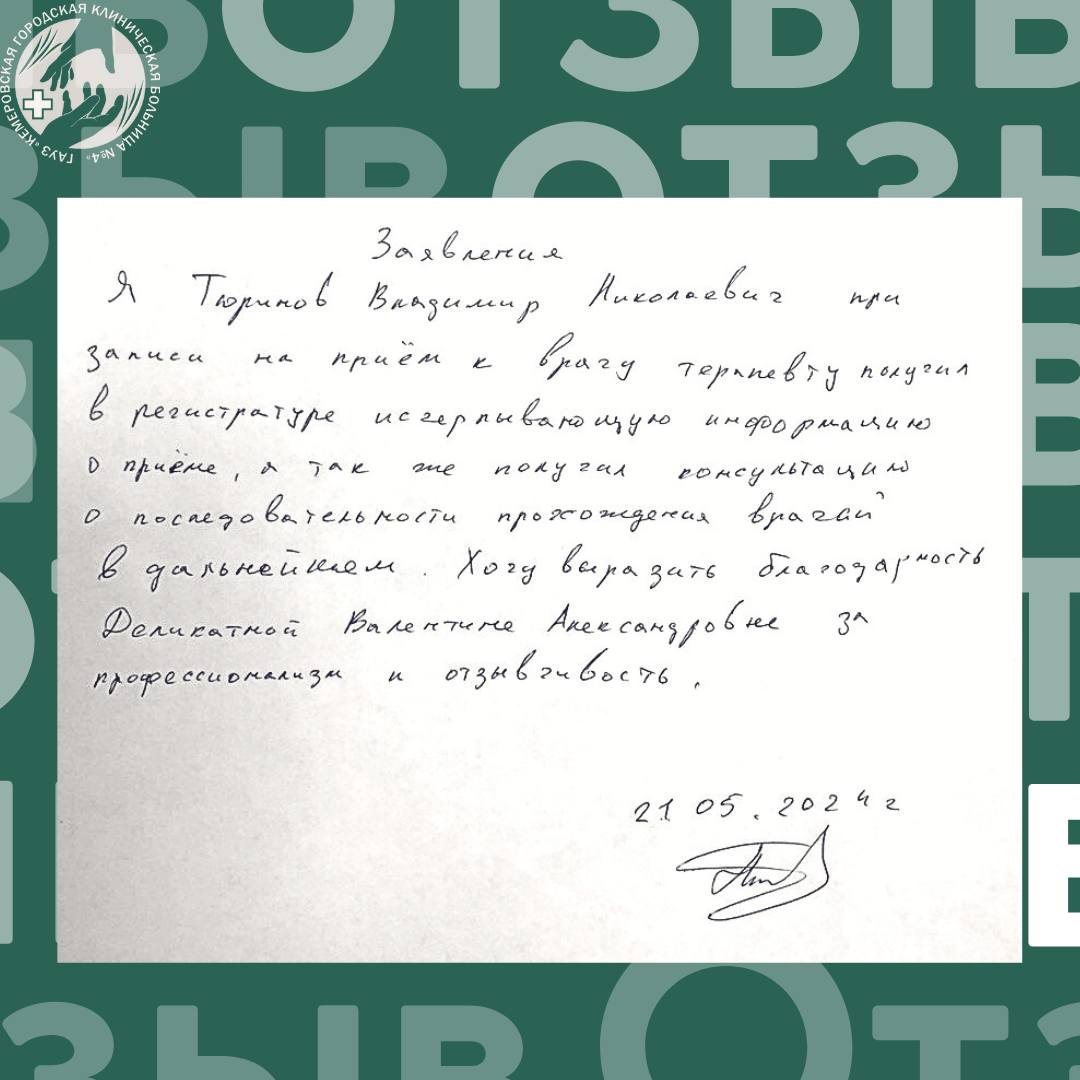 ГАУЗ «КЕМЕРОВСКАЯ ГОРОДСКАЯ КЛИНИЧЕСКАЯ БОЛЬНИЦА №4»
ВОТЗЫВ
ЗЫВОТЗЫ
Заявления
Я Тюринов Владимир Николаевич при
записи на приём к врачу терапевту получил
в регистратуре исчерпывающую информацию
о приёме, а так же получил консультацию
о последовательности прохождения врачей
в дальнейшем. Хочу выразить благодарность
Деликатной Валентине Александровне за
профессионализм и отзывчивость.
21 05. 2024 г
ЗЫВОТ